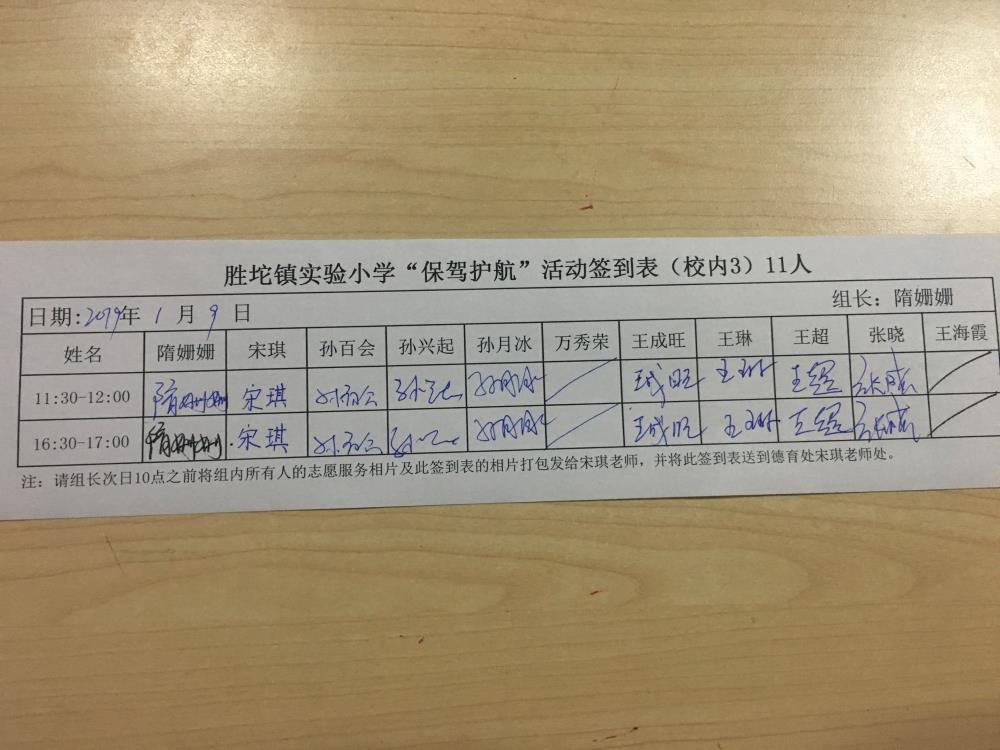 胜坨镇实验小学“保驾护航”活动签到表（校内3）11人
日期:2019年 1 月 9 日 组长：隋姗姗
姓名 隋姗姗 宋琪 孙百会 孙兴起 孙月冰 万秀荣 王成旺 王琳 王超 张晓 王海霞
11:30-12:00 隋姗姗 宋琪 孙百会 孙兴起 孙月冰 王成旺 王琳 王超
16:30-17:00 隋姗姗 宋琪 孙百会 孙兴起 孙月冰 王成旺 王琳 王超
注：请组长次日10点之前将组内所有人的志愿服务相片及此签到表的相片打包发给宋琪老师，并将此签到表送到德育处宋琪老师处。